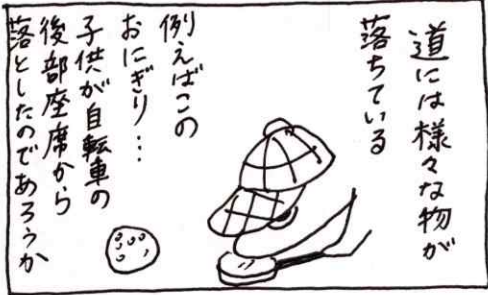 道には様々な物が
落ちている
例えばこの
おにぎり…
子供が自転車の
後部座席から
落としたのであろうか